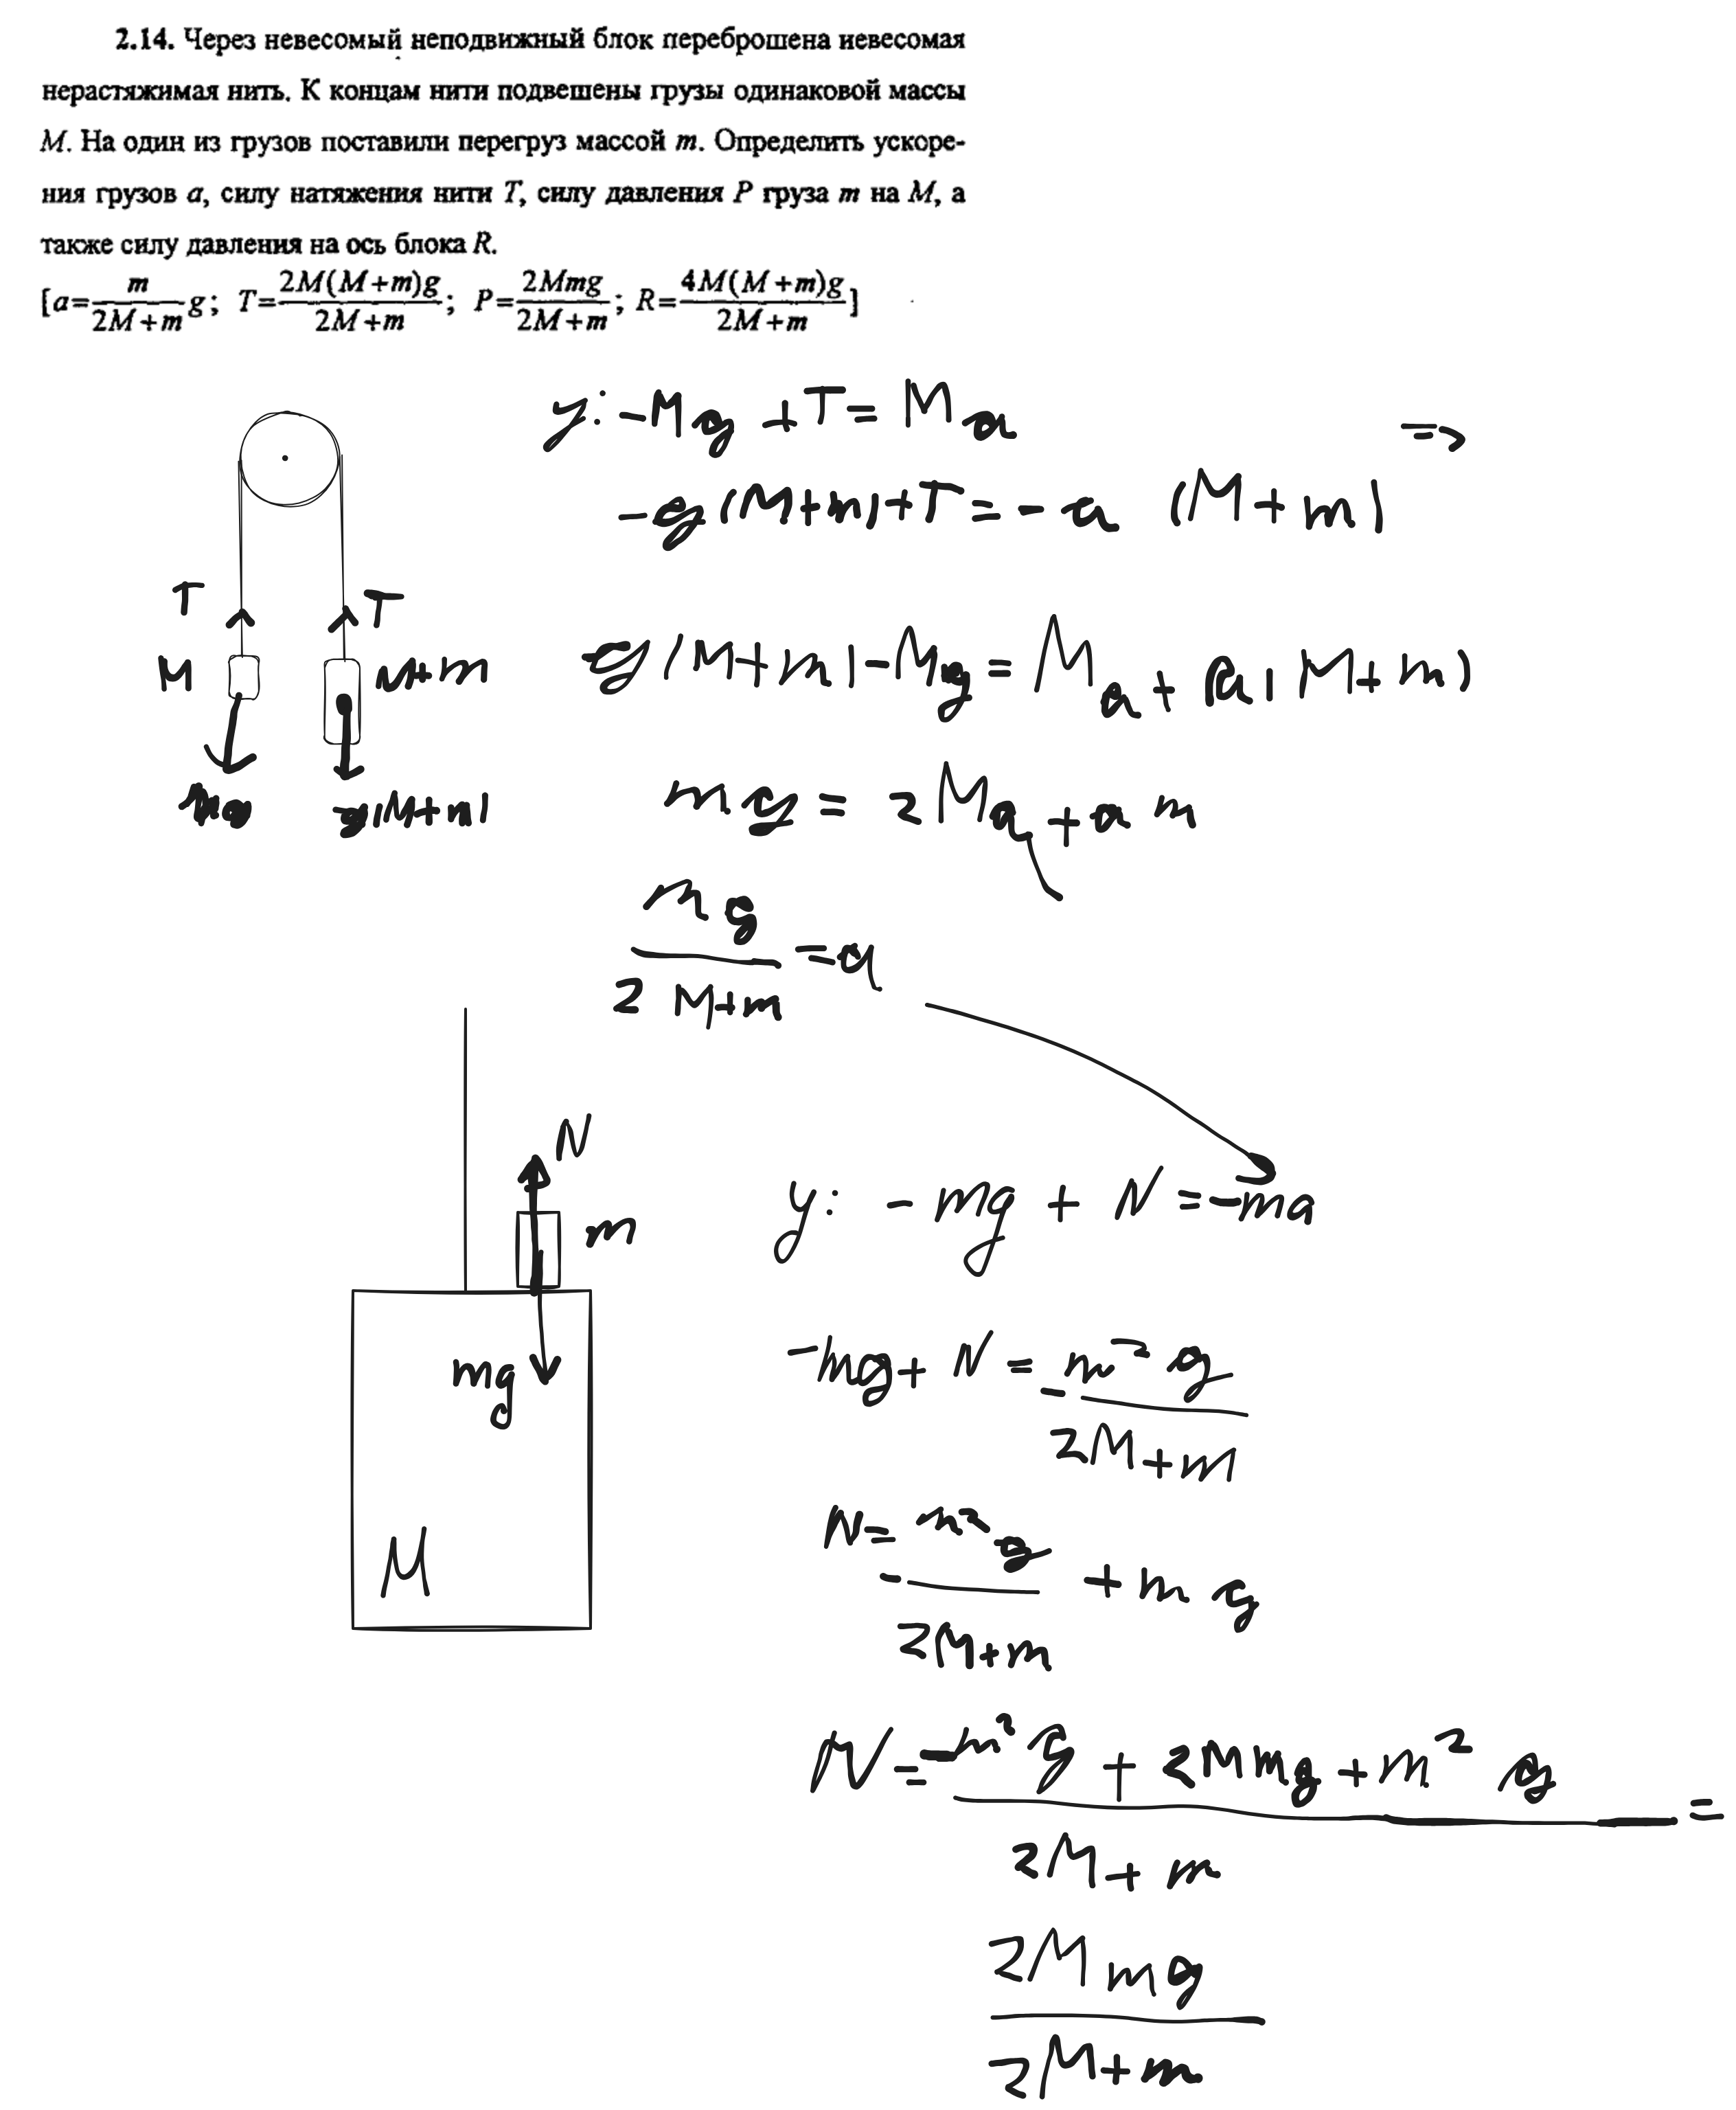 2.14. Через невесомый неподвижный блок переброшена иевесомая
нерастяжимая нить. К концам нити подвешены грузы одинаковой массы
M. На один из грузов поставили перегруз массой m. Определить ускоре-
ния грузов a, силу натяжения нити T, силу давления P груза m на M, а
также силу давления на ось блока R.
[a=m/(2M+m) g; T=2M(M+m)g/(2M+m); P=2Mmg/(2M+m); R=4M(M+m)g/(2M+m)]
y: -Mg + T = Ma =>
-g(M+m)+T = -a (M+m)
T T
M M+m
Mg g(M+m)
g(M+m)-Mg = Ma + a(M+m)
mg = 2Ma + am
mg/(2M+m) = a
N
m
mg
M
y: -mg + N = -ma
-mg + N = -m²g/(2M+m)
N = -m²g/(2M+m) + mg
N = (-m²g + 2Mmg + m²g)/(2M+m) =
2Mmg/(2M+m)